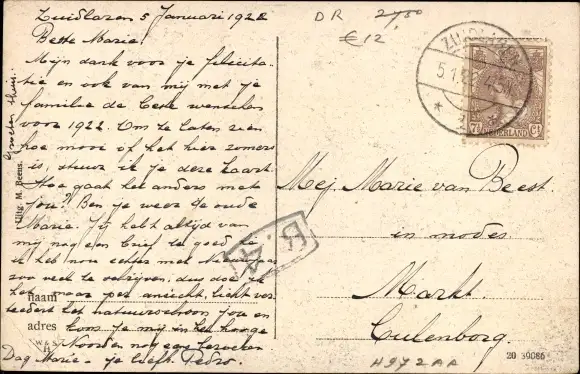 Zuidlaren 5 Januari 1922
Beste Marie!
Mijn dank voor je felicita-
tie en ook van mij met je
familie de beste wenschen
voor 1922. Om te laten zien
hoe mooi of het hier zomers
is, stuur ik je deze kaart.
Hoe gaat het anders met
jou? Ben je weer de oude
Marie. Jij hebt altijd van
mij nog een brief te goed he
ik heb nou echter met Nieuwjaar
zoo veel te schrijven, dus doe ik
het maar per ansicht, licht ver-
het natuurschoon jou en
kom je mij in het hooge
Noorden nog eens bezoeken
Dag Marie - je liefh. Pedro.
Groeten thuis.
Uitg. M. Beens.
naam
adres
DR 27,50
€12
ZUIDLAREN
5.1.
7½ NEDERLAND Ct
Mej Marie van Beest.
in modes
Markt.
Culenborg.
R. 4
20 39086
H972AA